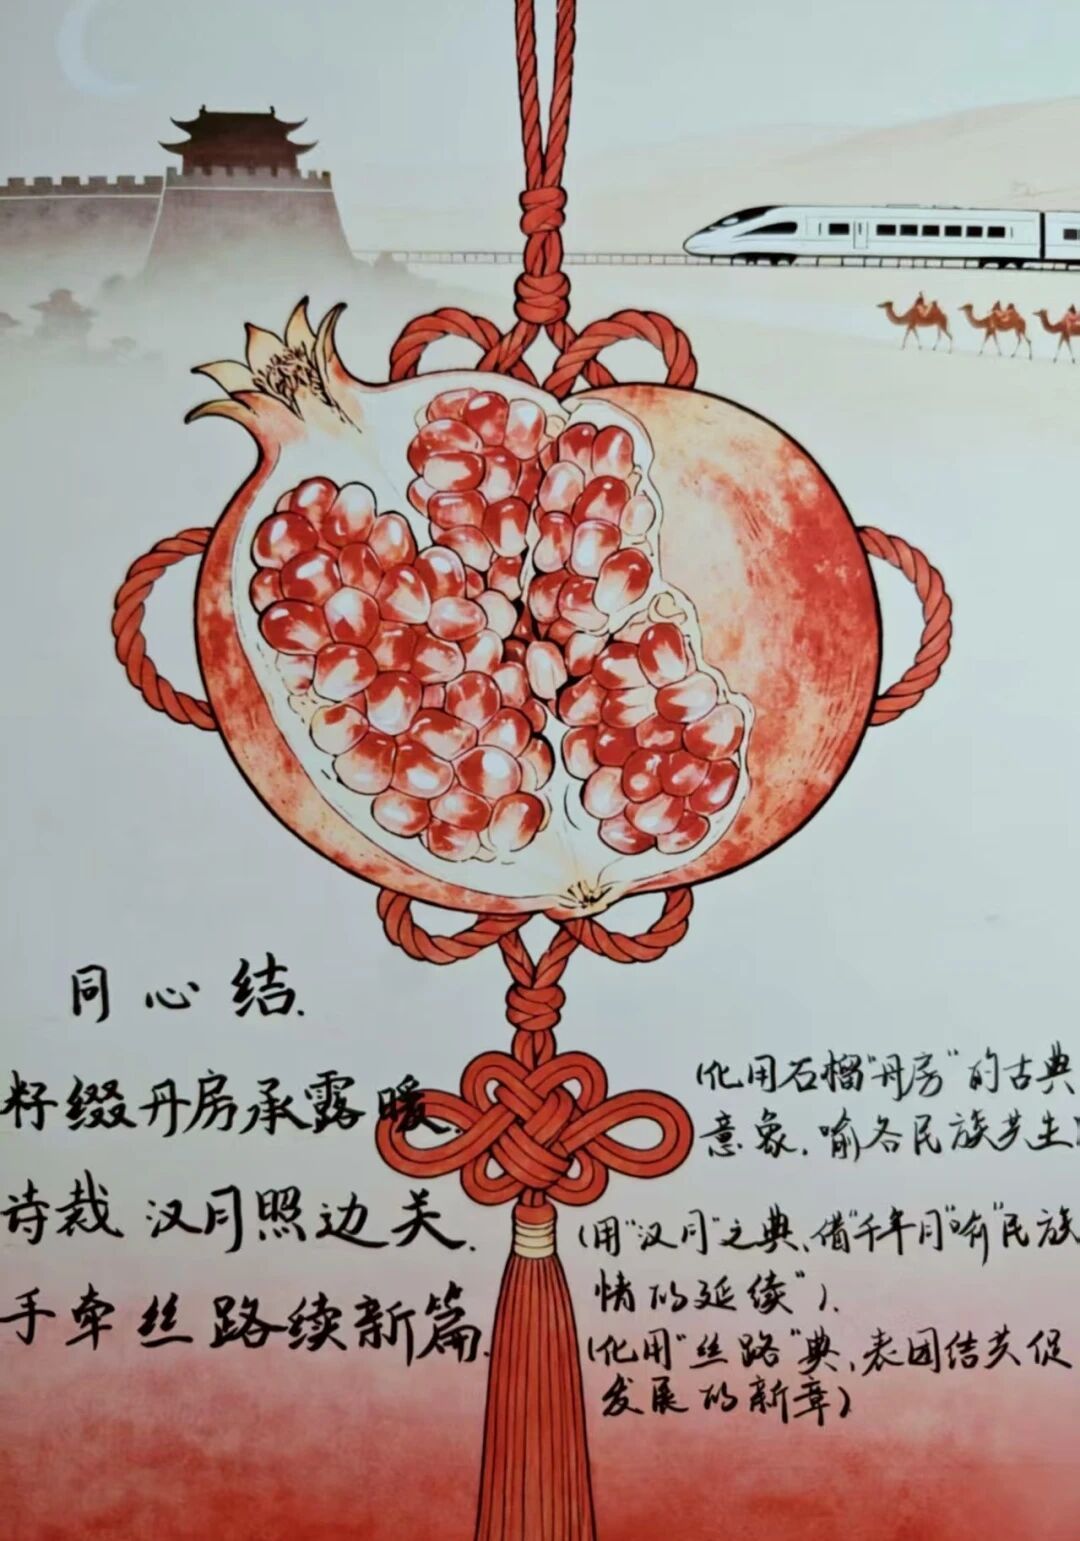 同心结.
籽缀丹房承露暖.
诗裁汉月照边关.
手牵丝路续新篇.
(化用石榴"丹房"的古典
意象.喻各民族共生
(用"汉月"之典、借"千年月"喻"民族
情的延续").
(化用"丝路"典、表团结共促
发展的新章)